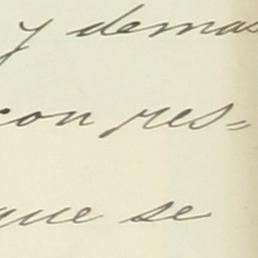 y demas
con res=
que se